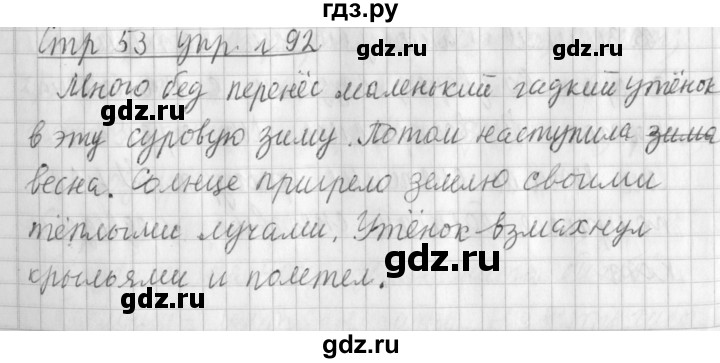 гдз.ру
Стр 53 упр. 192
gdz.ru gdz.ru
Много бед перенёс маленький гадкий утёнок
в эту суровую зиму. Потом наступила зима
gdz.ru gdz.ru
весна. Солнце пригрело землю своими
тёплыми лучами. Утёнок взмахнул
gdz.ru
крыльями и полетел.
gdz.ru gdz.ru